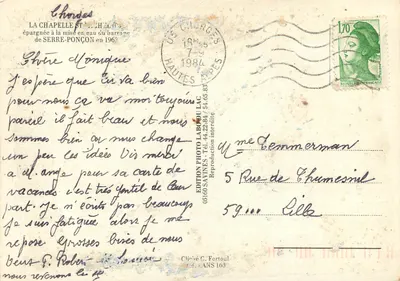 Chorges
LA CHAPELLE ST
épargnée à la mise en eau du barrage
de SERRE-PONÇON en 1961
Chère Monique
J'espère que çà va bien
pour nous ça va moi toujours
pareil il fait beau et nous
sommes bien ça nous change
un peu les idées Dis merci
a pour sa carte de
vacances c'est très gentil de leur
part. je n'écris pas beaucoup
je suis fatiguée alors je me
repose Grosses bises de nous
P. Robert
nous revenons le
CHORGES
1984
HAUTES ALPES
1,70
EDITION PHOTO LABO DU LAC
05160 SAVINES - Tél. 44.22.84
Reproduction interdite
Mme Temmerman
5 Rue de Thumesnil
59000 Lille
Cliché C.